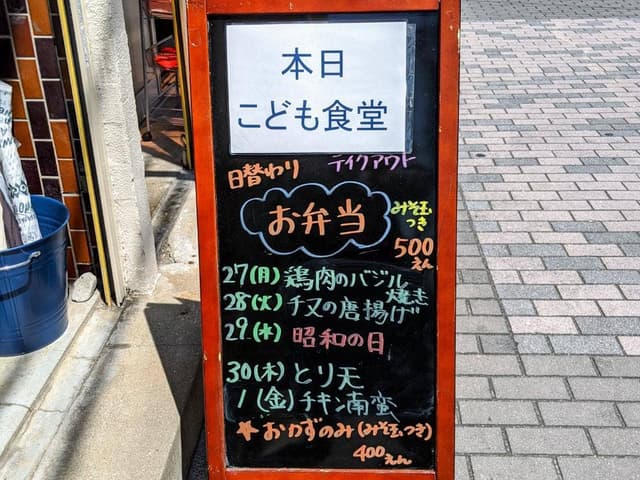 本日
こども食堂
日替わり テイクアウト
お弁当 みそ玉つき
500えん
27(月) 鶏肉のバジル焼き
28(火) チヌの唐揚げ
29(水) 昭和の日
30(木) とり天
1(金) チキン南蛮
★おかずのみ(みそ玉つき)
400えん